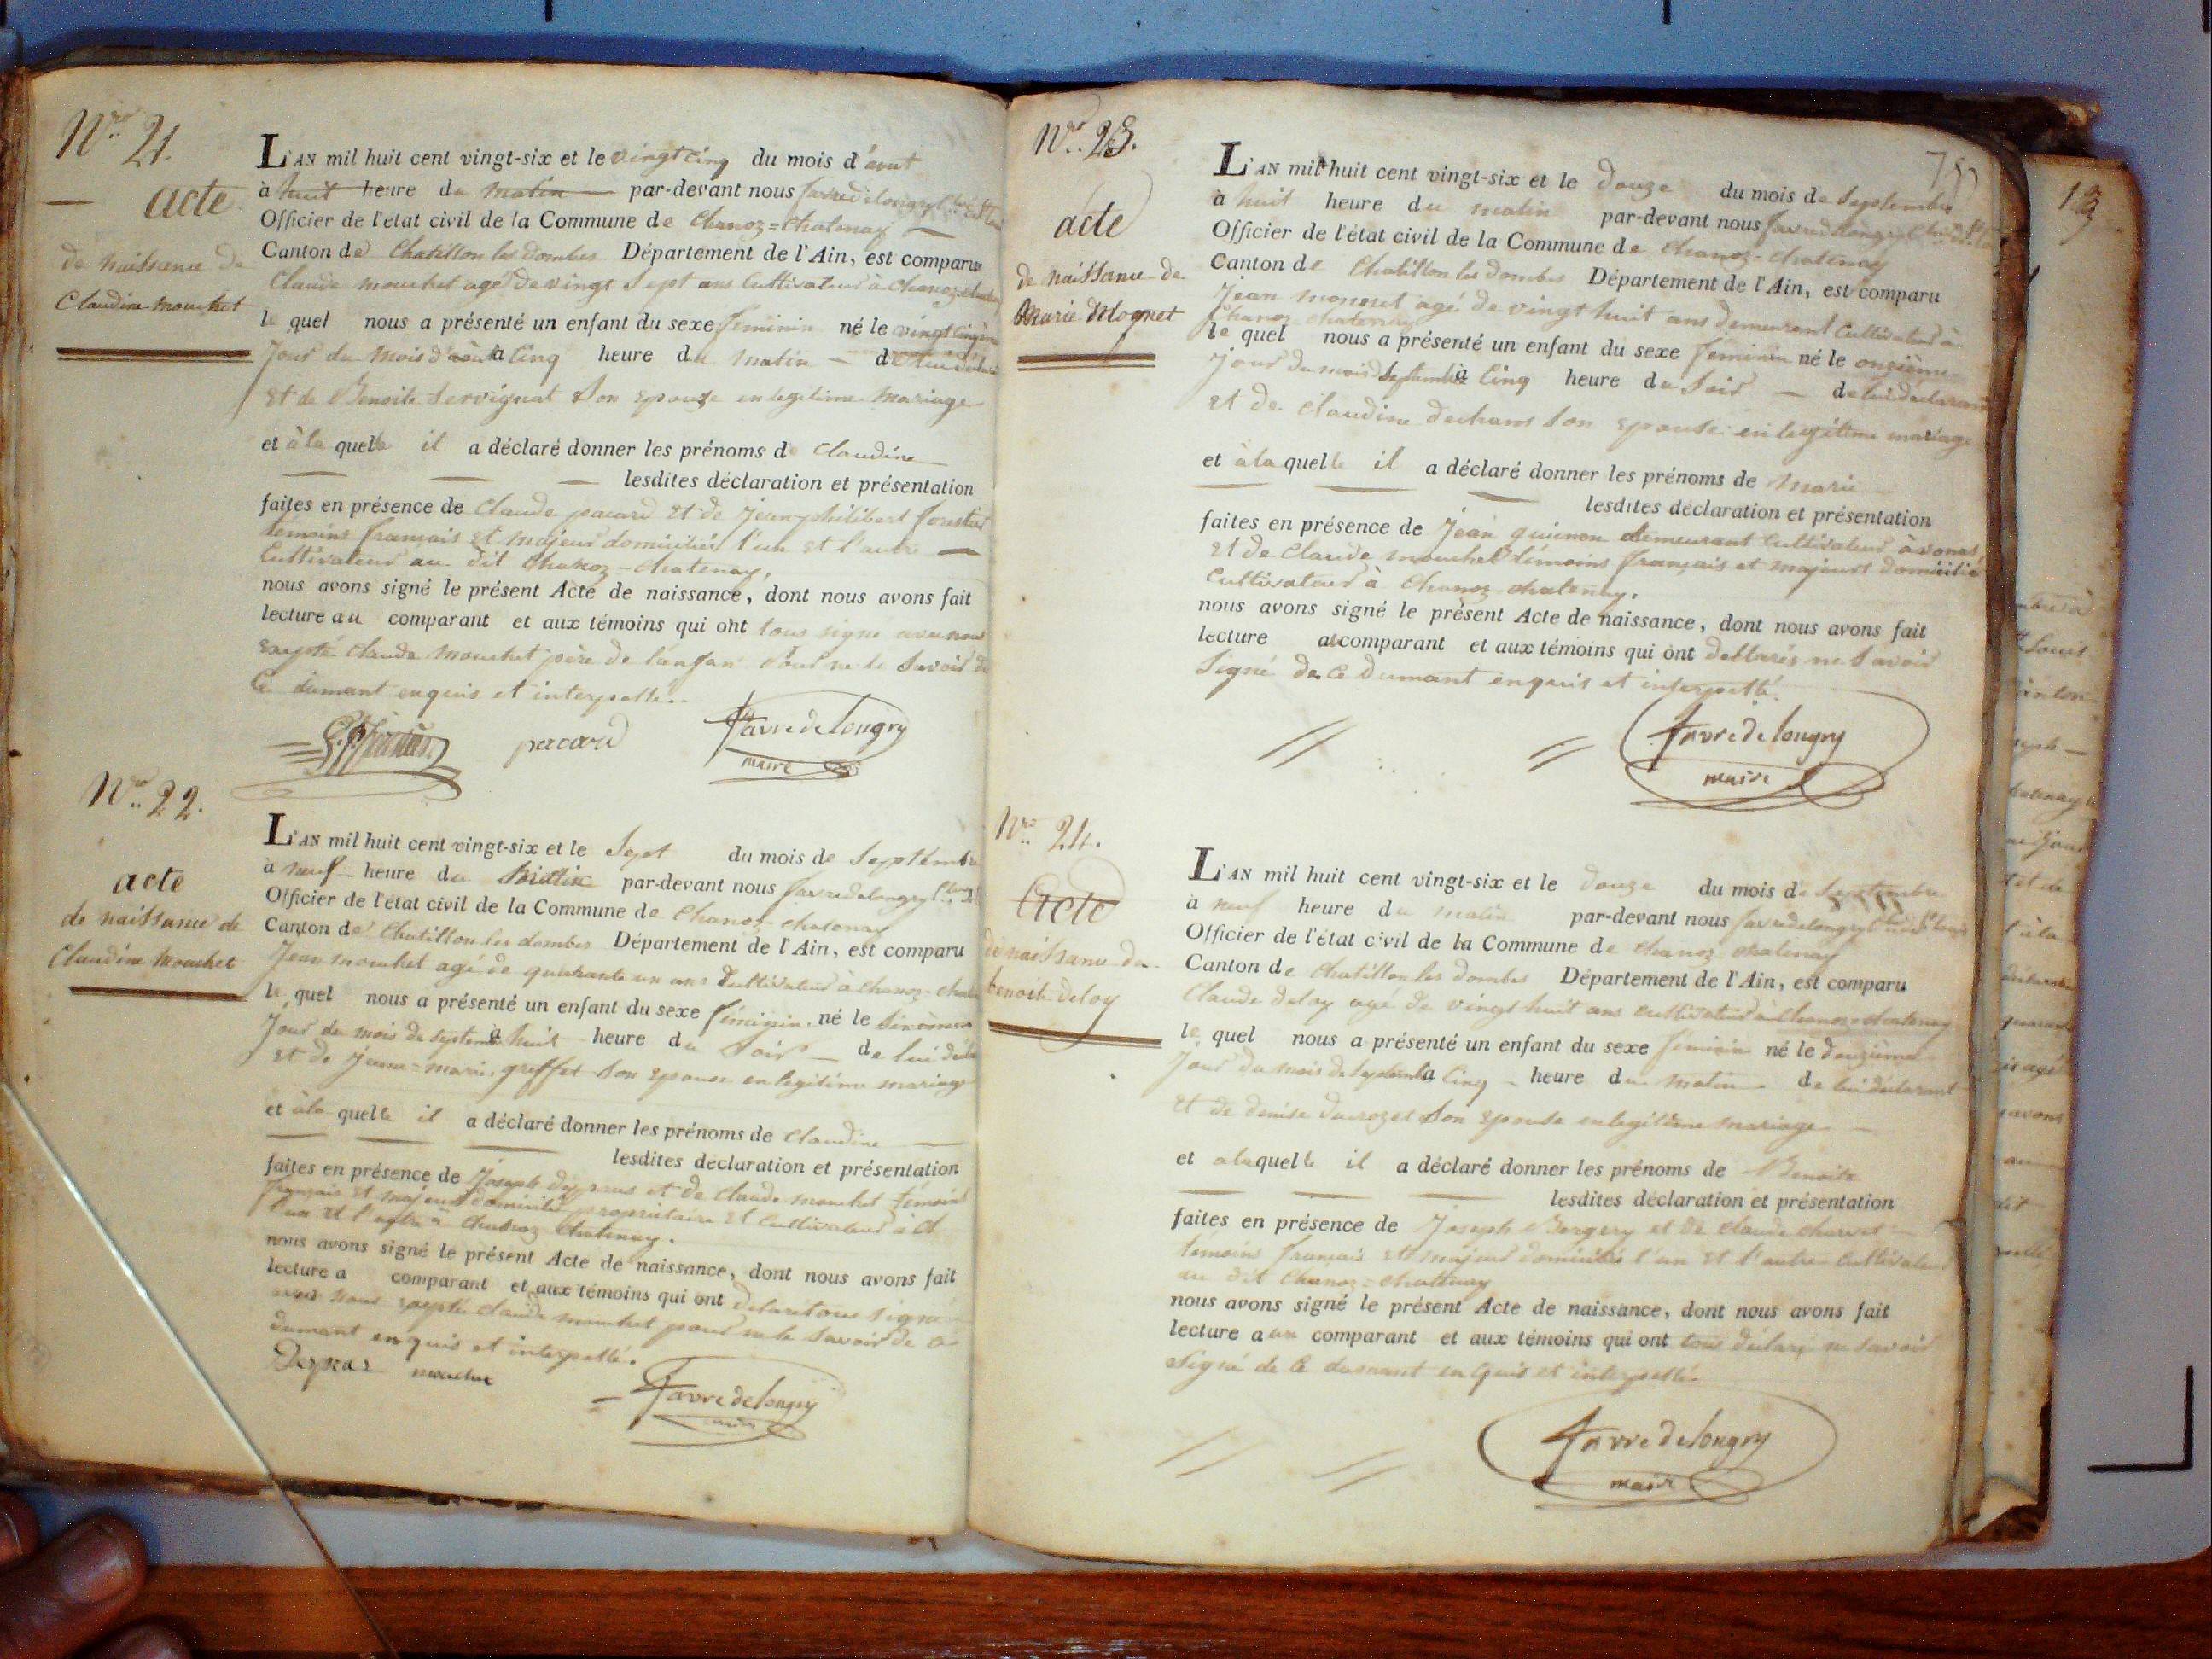 Nro 21.
acte
de naissance de
Claudine mouchet
L'AN mil huit cent vingt-six et le vingt cinq du mois d'aout
à huit heure du matin par-devant nous favredelongry
Officier de l'état civil de la Commune de Chanoz=Chatenay
Canton de Chatillon les dombes Département de l'Ain, est comparu
Claude mouchet agé de vingt Sept ans Cultivateur à Chanoz-
le quel nous a présenté un enfant du sexe feminin né le vingt cinq
Jour du mois d'aout à Cinq heure du matin — de lui
et de Benoite Servignat Son epouse en legitime mariage
et à la quelle il a déclaré donner les prénoms de Claudine
lesdites déclaration et présentation
faites en présence de Claude pacard et de jean philibert
témoins français et majeur domiciliés l'un et l'autre
Cultivateur au dit Chanoz-chatenay,
nous avons signé le présent Acte de naissance, dont nous avons fait
lecture au comparant et aux témoins qui ont tous signé avec nous
excepté Claude mouchet père de l'enfan pour ne le Savoir de
Ce dumant enquis et interpellé..
pacard
favre de longry
maire
Nro 22.
acte
de naissance de
Claudine mouchet
L'AN mil huit cent vingt-six et le Sept du mois de Septembre
à neuf heure du matin par-devant nous favredelongry
Officier de l'état civil de la Commune de Chanoz-chatenay
Canton de Chatillon les dombes Département de l'Ain, est comparu
Jean mouchet agé de quarante un ans Cultivateur à Chanoz-
le quel nous a présenté un enfant du sexe féminin né le Sixième
Jour du mois de septem à huit heure du Soir — de lui
et de jeanne=marie greffet Son epouse en legitime mariage
et à la quelle il a déclaré donner les prénoms de Claudine
lesdites déclaration et présentation
faites en présence de Joseph et de Claude mouchet témoins
français et majeur domicilié propriétaire et Cultivateur à
l'un et l'autre à Chanoz Chatenay.
nous avons signé le présent Acte de naissance, dont nous avons fait
lecture a comparant et aux témoins qui ont signé
avec nous excepté Claude mouchet pour ne le Savoir de ce
dumant enquis et interpellé.
mouchet
favre de longry
maire
Nro 23.
acte
de naissance de
Marie Mognet
L'AN mil huit cent vingt-six et le douze du mois de Septembre
à huit heure du matin par-devant nous favredelongry
Officier de l'état civil de la Commune de Chanoz-chatenay
Canton de Chatillon les dombes Département de l'Ain, est comparu
Jean agé de vingt huit ans demeurant Cultivateur à
Chanoz-chatenay
le quel nous a présenté un enfant du sexe féminin né le onzième
Jour du mois de Septembre à Cinq heure du Soir — de lui déclarant
et de Claudine dechant Son epouse en legitime mariage
et à la quelle il a déclaré donner les prénoms de Marie
lesdites déclaration et présentation
faites en présence de Jean guinon demeurant Cultivateur à vonas
et de Claude mouchet témoins français et majeurs domicilié
Cultivateur à Chanoz-chatenay.
nous avons signé le présent Acte de naissance, dont nous avons fait
lecture au comparant et aux témoins qui ont déclarés ne Savoir
Signé de Ce dumant enquis et interpellé.
favre de longry
maire
Nro 24.
Acte
de naissance de
benoite deloy
L'AN mil huit cent vingt-six et le douze du mois de Septembre
à neuf heure du matin par-devant nous favredelongry
Officier de l'état civil de la Commune de Chanoz chatenay
Canton de Chatillon les dombes Département de l'Ain, est comparu
Claude deloy agé de vingt huit ans cultivateur à Chanoz=chatenay
le quel nous a présenté un enfant du sexe feminin né le douzième
Jour du mois de Septembre à Cinq heure du matin de lui déclarant
et de denise Son epouse en legitime mariage
et a la quelle il a déclaré donner les prénoms de Benoite
lesdites déclaration et présentation
faites en présence de Joseph Bergery et de Claude
témoins français et majeur domiciliés l'un et l'autre Cultivateur
au dit Chanoz=Chatenay
nous avons signé le présent Acte de naissance, dont nous avons fait
lecture au comparant et aux témoins qui ont tous déclaré ne Savoir
Signé de Ce dumant enquis et interpellé.
favre de longry
maire